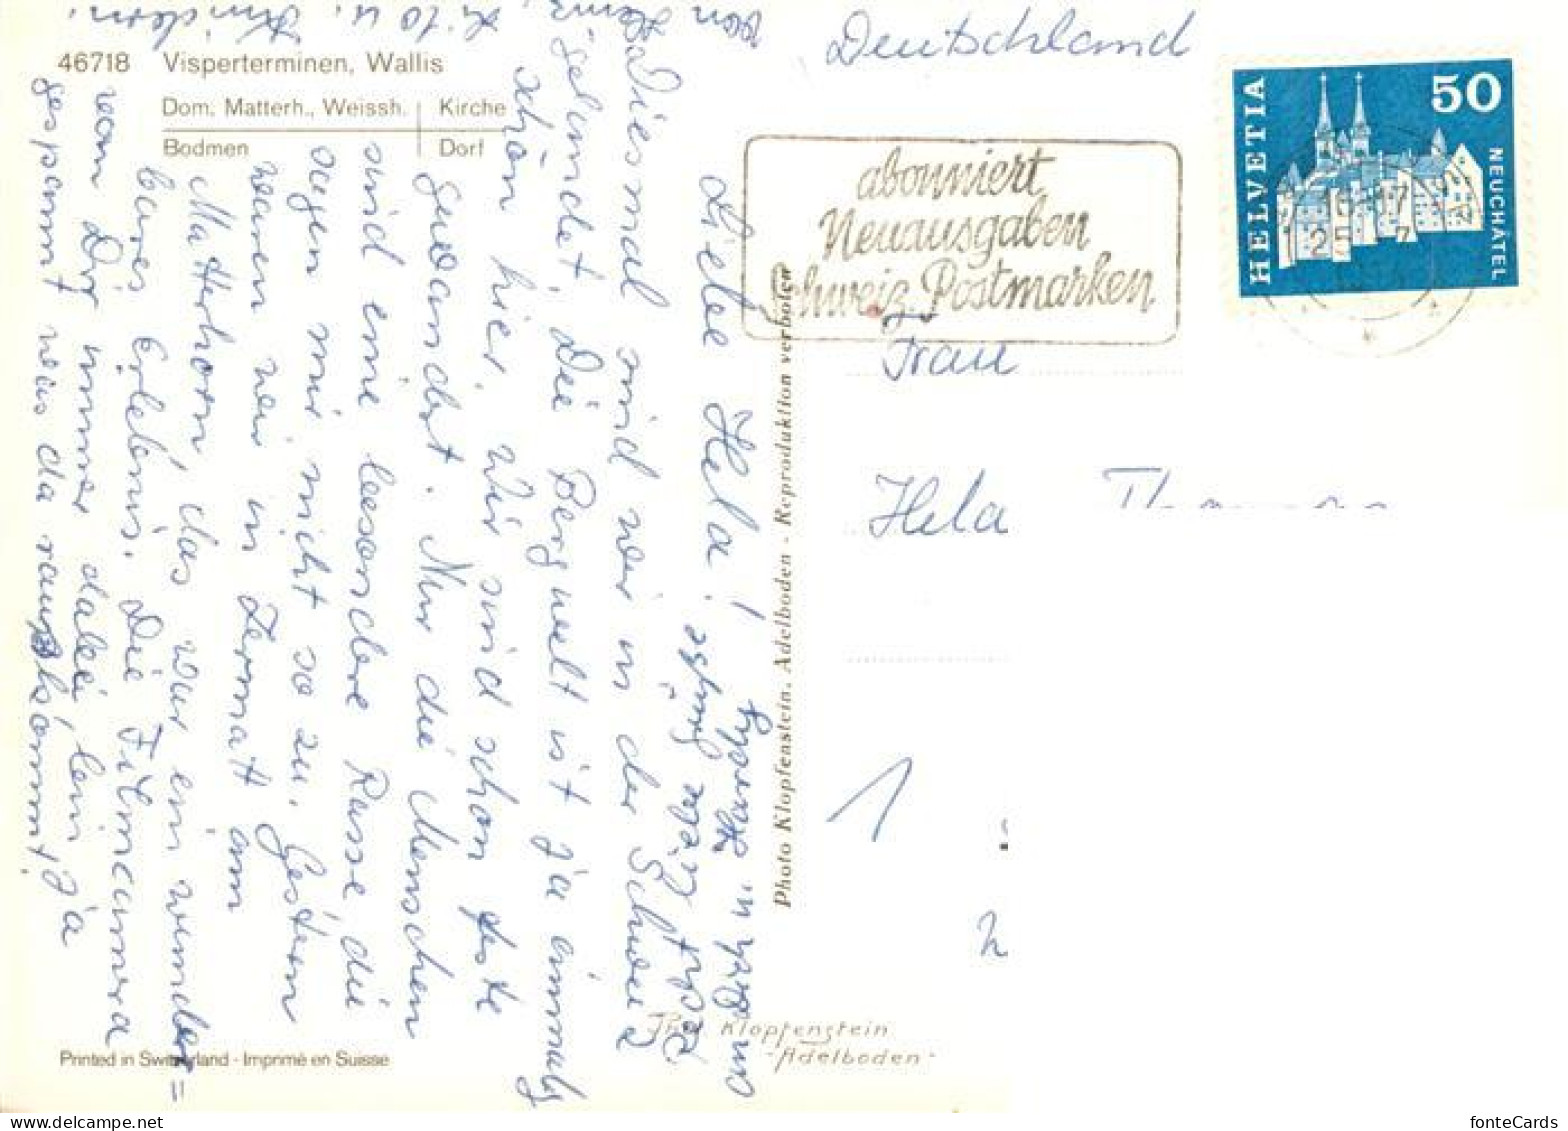 46718 Visperterminen, Wallis
Dom, Matterh., Weissh. Kirche
Bodmen Dorf
Liebe Hela!
Diesmal sind wir in der Schweiz
gelandet. Die Bergwelt ist ja einmalig
schön hier. Wir sind schon feste
gewandert. Nur die Menschen
sind eine besondere Rasse, die
sagen mir nicht so zu. Gestern
waren wir in Zermatt am
Matterhorn, das war ein wunder=
bares Erlebnis. Die Filmcamera
war immer dabei, bin ja
gespannt was da rauskommt.
Dich u. Harald
Liebe Grüße
Kindern.
Printed in Switzerland - Imprimé en Suisse
Photo Klopfenstein, Adelboden - Reproduktion verboten
Phot Klopfenstein
-Adelboden-
Deutschland
abonniert
Neuausgaben
Schweiz. Postmarken
HELVETIA
50
NEUCHÂTEL
16-17
Frau
Hela
1